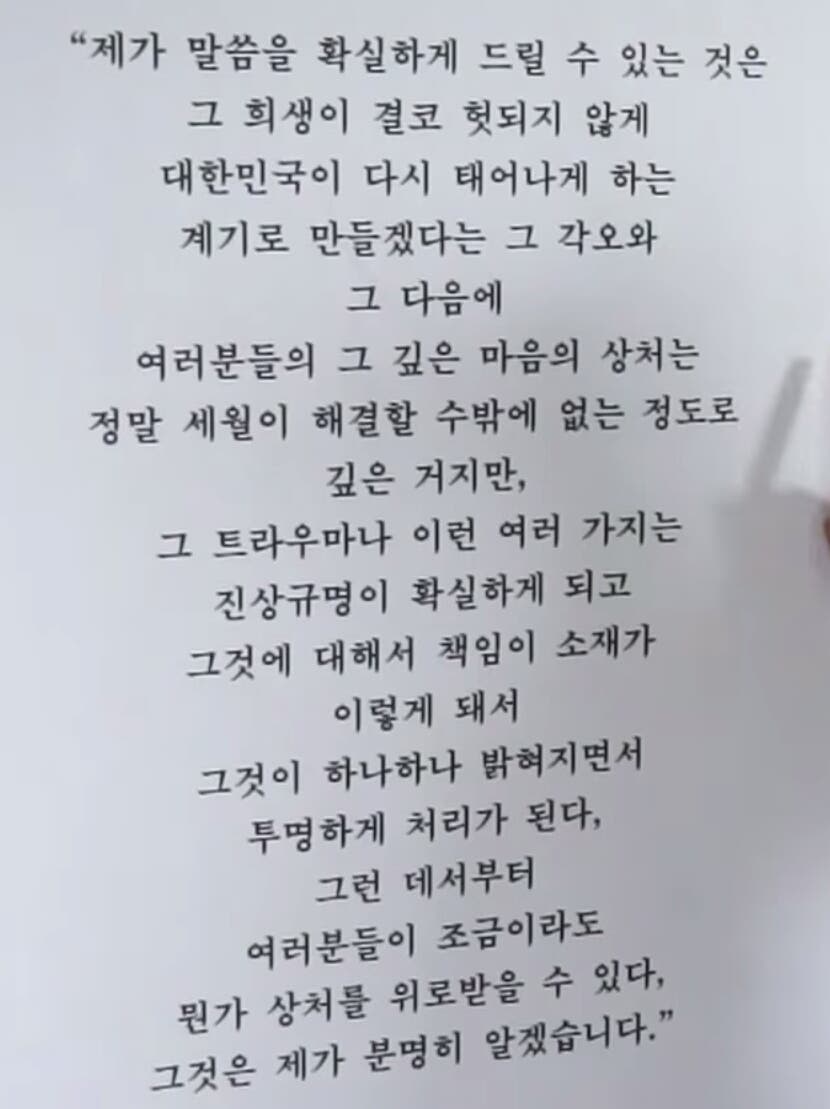 “제가 말씀을 확실하게 드릴 수 있는 것은
그 희생이 결코 헛되지 않게
대한민국이 다시 태어나게 하는
계기로 만들겠다는 그 각오와
그 다음에
여러분들의 그 깊은 마음의 상처는
정말 세월이 해결할 수밖에 없는 정도로
깊은 거지만,
그 트라우마나 이런 여러 가지는
진상규명이 확실하게 되고
그것에 대해서 책임이 소재가
이렇게 돼서
그것이 하나하나 밝혀지면서
투명하게 처리가 된다,
그런 데서부터
여러분들이 조금이라도
뭔가 상처를 위로받을 수 있다,
그것은 제가 분명히 알겠습니다.”